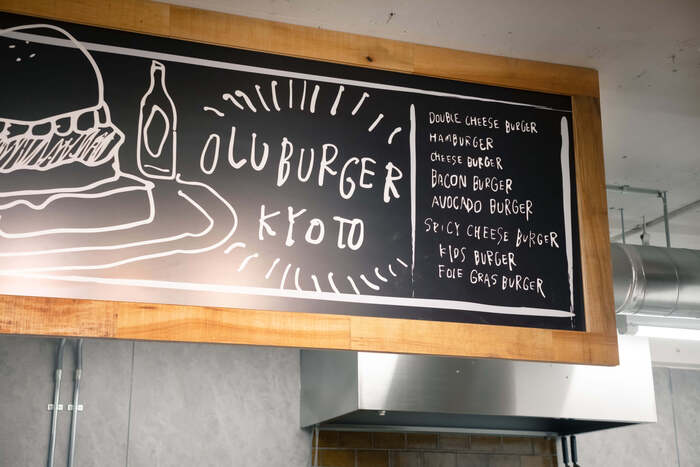 OLU BURGER
KYOTO
DOUBLE CHEESE BURGER
HAMBURGER
CHEESE BURGER
BACON BURGER
AVOCADO BURGER
SPICY CHEESE BURGER
KIDS BURGER
FOIE GRAS BURGER